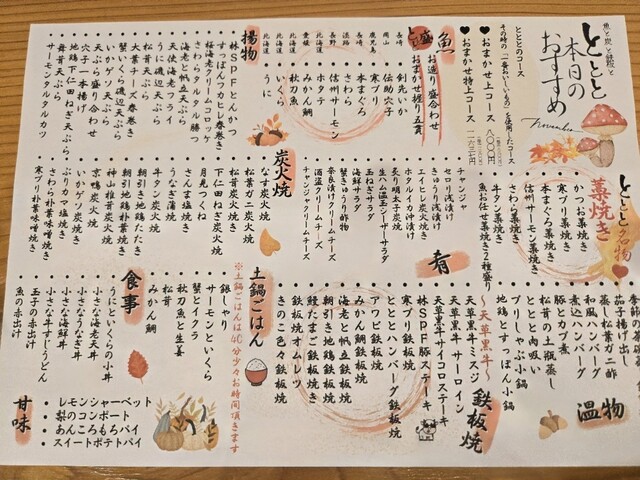 魚と炭と野菜と
ととと
本日の
おすすめ
とととのコース
その時の「一番おいしいもの」を使用したコース
♥ おまかせ上コース
♥ おまかせ特上コース
魚
とと盛
お造り盛合わせ
おまかせ握り五貫
長崎 剣先いか
岡山 伝助穴子
鹿児島 寒ブリ
長崎 本まぐろ
淡路 さわら
長野 信州サーモン
北海道 ホタテ
愛媛 みかん鯛
北海道 秋刀魚
北海道 うに
揚物
・林SPFとんかつ
・すっぽんつカヒレ春巻き
・桜海老クリームコロッケ
・さわらタルタル勝つ
・天使海老フライ
・海老と帆立天ぷら
・うに磯辺天ぷら
・松茸天ぷら
・大葉チーズ春巻き
・蟹いくら磯辺天ぷら
・いかゲソ天ぷら
・天ぷら盛り合わせ
・穴子一本揚げ
・地鶏下仁田ねぎ天ぷら
・舞茸天ぷら
・サーモンタルタルカツ
藁焼き
ととと名物
・かつお藁焼き
・寒ブリ藁焼き
・本まぐろ藁焼き
・信州サーモン藁焼き
・さわら藁焼き
・牛タン藁焼き
・魚お任せ藁焼き2種盛り
肴
・チャンジャ
・セロリ浅漬け
・きゅうり浅漬け
・エイヒレ炭火焼き
・ホタルイカ沖漬け
・炙り明太子炭焼
・生ハム温玉シーザーサラダ
・玉ねぎサラダ
・海鮮サラダ
・蟹きゅうり酢物
・奈良漬けクリームチーズ
・酒盗クリームチーズ
・チャンジャクリームチーズ
炭火焼
・なす炭火焼
・松葉ガニ炭火焼
・松茸炭火焼
・下仁田ねぎ炭火焼
・月見つくね
・さんま塩焼き
・うなぎ蒲焼
・牛タン炭火焼
・朝引き地鶏たたき
・朝引き地鶏炭火焼き
・神山椎茸炭火焼
・京鴨炭火焼
・いかゲソ炭焼
・ぶりカマ塩焼き
・さわら朴葉味噌焼き
・寒ブリ朴葉味噌焼き
温物
・茄子揚げ出し
・蒸し松葉ガニ酢
・和風ハンバーグ
・煮込ハンバーグ
・豚とカブ煮
・松茸の土瓶蒸し
・ととと肉吸い
・ブリしゃぶ小鍋
・地鶏とすっぽん小鍋
鉄板焼
〜天草黒牛〜
・天草黒牛ミスジ
・天草黒牛サーロイン
・天草黒牛サイコロステーキ
・林SPF豚ステーキ
・とととハンバーグ
・寒ブリ鉄板焼
・アワビ鉄板焼
・みかん鯛鉄板焼
・海老と帆立鉄板焼
・朝引き地鶏鉄板焼
・鰻たまご鉄板焼き
・鉄板焼オムレツ
・きのこ色々鉄板焼
土鍋ごはん
※土鍋ごはんは40分少々お時間頂きます
・銀しゃり
・サーモンといくら
・蟹とイクラ
・秋刀魚と生姜
・松茸
・みかん鯛
食事
・うにといくらの小丼
・小さな海老天丼
・小さなうなぎ丼
・小さな海鮮丼
・小さな牛すじうどん
・玉子の赤出汁
・魚の赤出汁
甘味
・レモンシャーベット
・梨のコンポート
・あんころもちパイ
・スイートポテトパイ